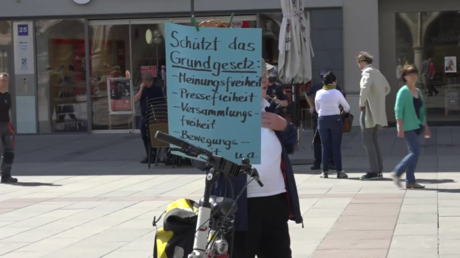 25
Schützt das
Grundgesetz:
-Meinungsfreiheit
-Pressefreiheit
-Versammlungs-
freiheit
-Bewegungs-
u.a